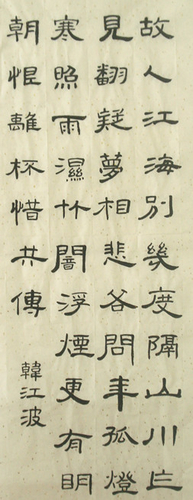 故人江海別幾度隔山川乍
見翻疑夢相悲各問年孤燈
寒照雨濕竹闇浮煙更有明
朝恨離杯惜共傳
韓江波